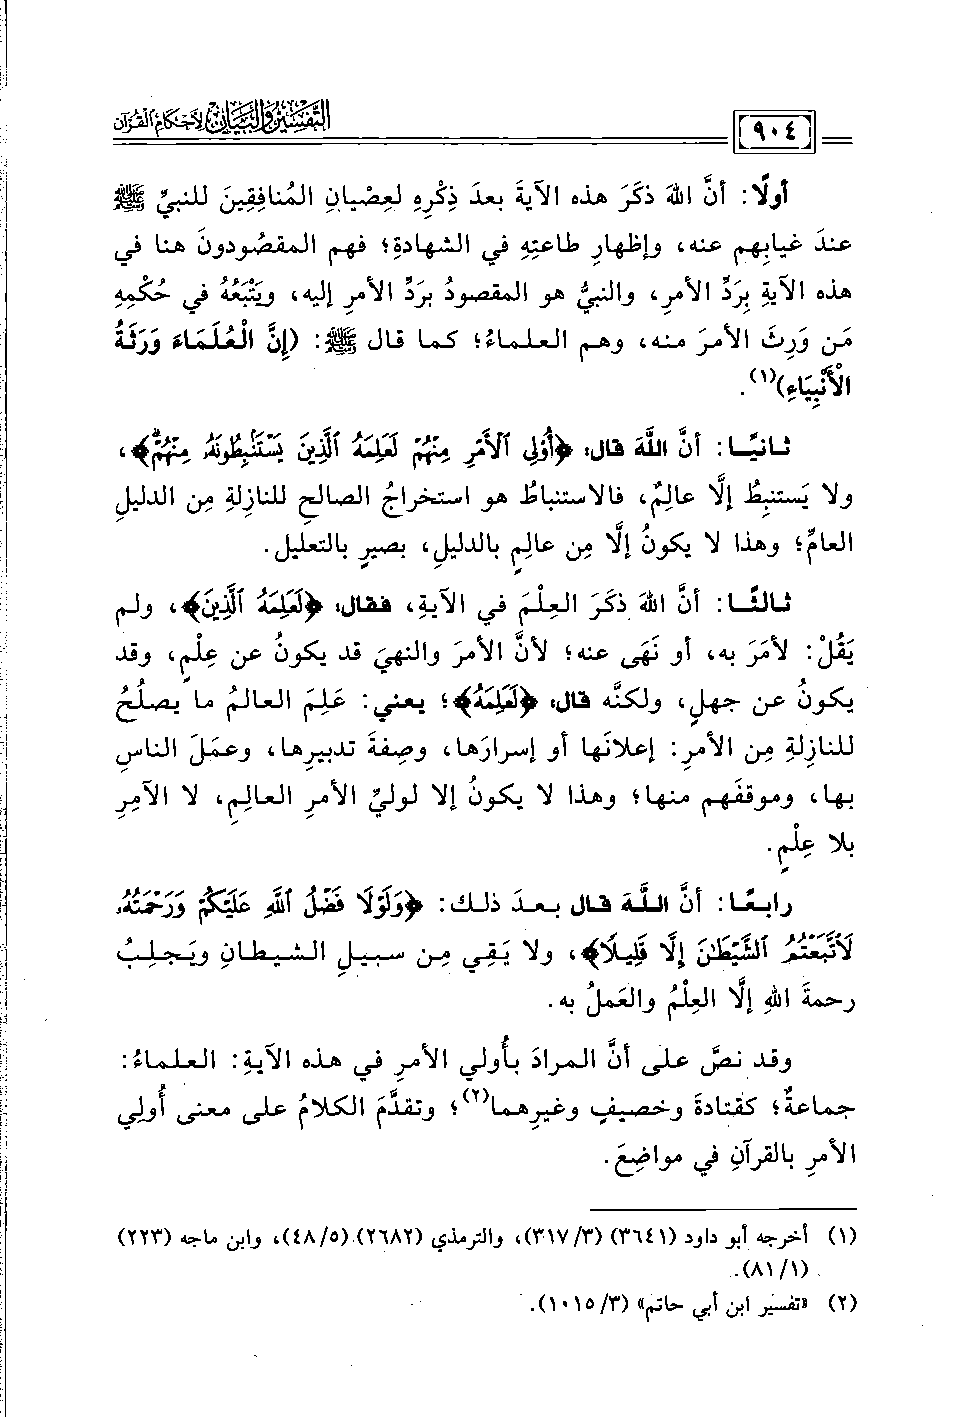 التفسير والبيان لأحكام القرآن
٩٠٤
أولًا: أنَّ اللهَ ذكَرَ هذه الآيةَ بعدَ ذِكْرِهِ لعِصْيانِ المُنافِقِينَ للنبيِّ ﷺ
عندَ غيابِهم عنه، وإظهارِ طاعتِهِ في الشهادةِ؛ فهم المقصُودونَ هنا في
هذه الآيةِ بِرَدِّ الأمرِ، والنبيُّ هو المقصودُ بردِّ الأمرِ إليه، ويَتْبَعُهُ في حُكْمِهِ
مَن وَرِثَ الأمرَ منه، وهم العلماءُ؛ كما قال ﷺ: (إِنَّ الْعُلَمَاءَ وَرَثَةُ
الْأَنْبِيَاءِ)(١).
ثانيًا: أنَّ اللَّهَ قال: ﴿أُوْلِي ٱلْأَمْرِ مِنْهُمْ لَعَلِمَهُ ٱلَّذِينَ يَسْتَنۢبِطُونَهُۥ مِنْهُمْۗ﴾،
ولا يَستنبِطُ إلَّا عالِمٌ، فالاستنباطُ هو استخراجُ الصالحِ للنازلةِ مِن الدليلِ
العامِّ؛ وهذا لا يكونُ إلَّا مِن عالِمٍ بالدليلِ، بصيرٍ بالتعليل.
ثالثًا: أنَّ اللهَ ذكَرَ العِلْمَ في الآيةِ، فقال: ﴿لَعَلِمَهُ ٱلَّذِينَ﴾، ولم
يَقُلْ: لأمَرَ به، أو نَهَى عنه؛ لأنَّ الأمرَ والنهيَ قد يكونُ عن عِلْمٍ، وقد
يكونُ عن جهلٍ، ولكنَّه قال: ﴿لَعَلِمَهُ﴾؛ يعني: عَلِمَ العالمُ ما يصلُحُ
للنازلةِ مِن الأمرِ: إعلانَها أو إسرارَها، وصِفةَ تدبيرِها، وعمَلَ الناسِ
بها، وموقفَهم منها؛ وهذا لا يكونُ إلا لوليِّ الأمرِ العالِمِ، لا الآمِرِ
بلا عِلْمٍ.
رابعًا: أنَّ اللَّهَ قال بعدَ ذلك: ﴿وَلَوْلَا فَضْلُ ٱللَّهِ عَلَيْكُمْ وَرَحْمَتُهُۥ
لَٱتَّبَعْتُمُ ٱلشَّيْطَٰنَ إِلَّا قَلِيلًا﴾، ولا يَقِي مِن سبيلِ الشيطانِ ويَجلِبُ
رحمةَ اللهِ إلَّا العِلْمُ والعَملُ به.
وقد نصَّ على أنَّ المرادَ بأُولي الأمرِ في هذه الآيةِ: العلماءُ:
جماعةٌ؛ كقتادةَ وخصيفٍ وغيرِهما(٢)؛ وتقدَّمَ الكلامُ على معنى أُولِي
الأمرِ بالقرآنِ في مواضِعَ.
(١) أخرجه أبو داود (٣٦٤١) (٣/٣١٧)، والترمذي (٢٦٨٢) (٥/٤٨)، وابن ماجه (٢٢٣)
(١/٨١).
(٢) «تفسير ابن أبي حاتم» (٣/١٠١٥).